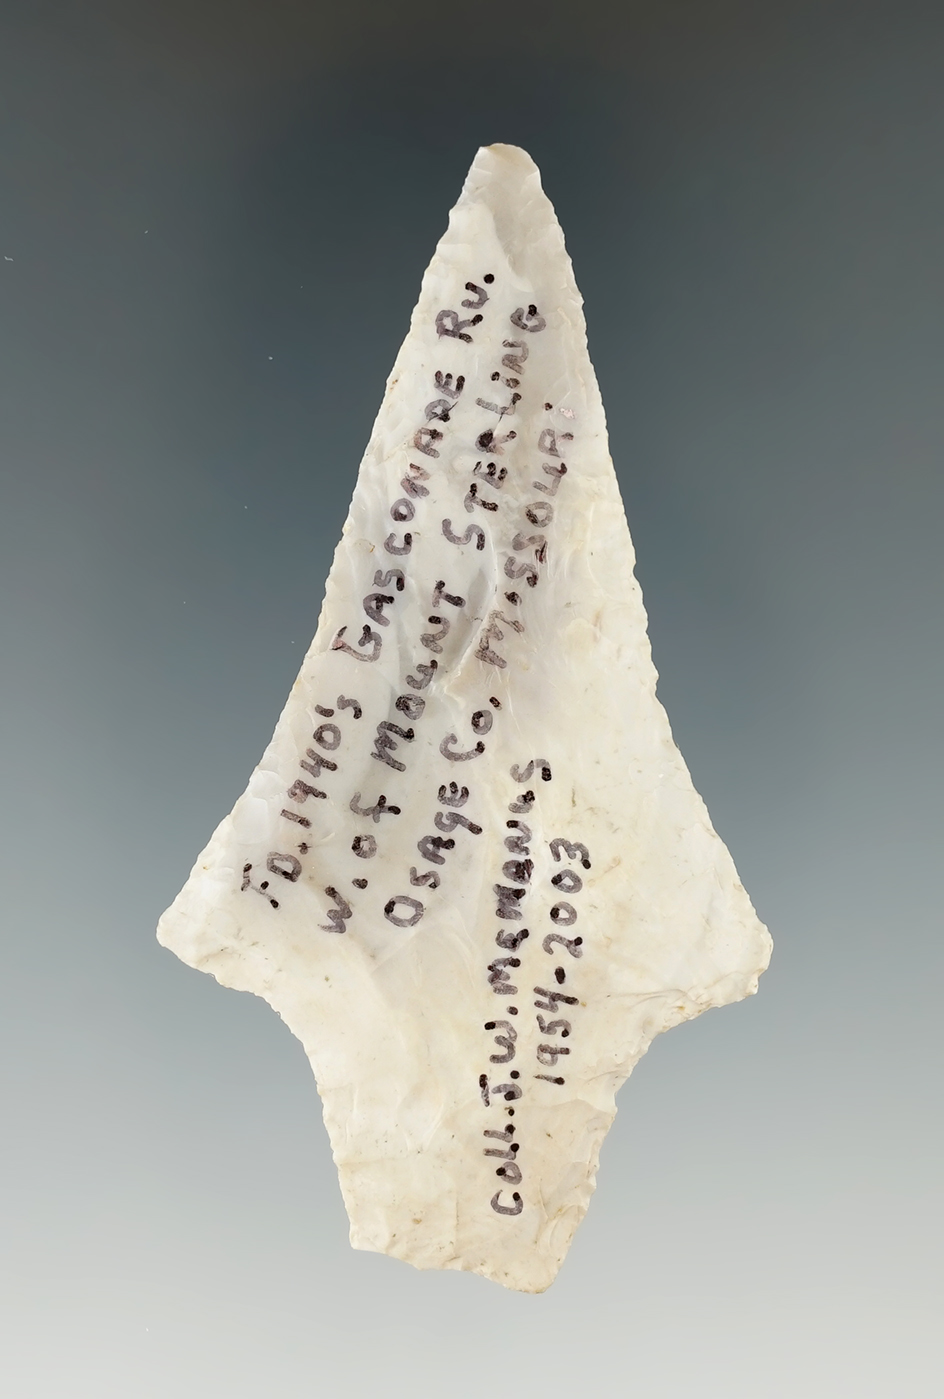 FD. 1940's GASCONADE RV.
W. OF MOUNT STERLING
OSAGE CO, MISSOURI
COLL. J.W. MCMANUS
1954-2003